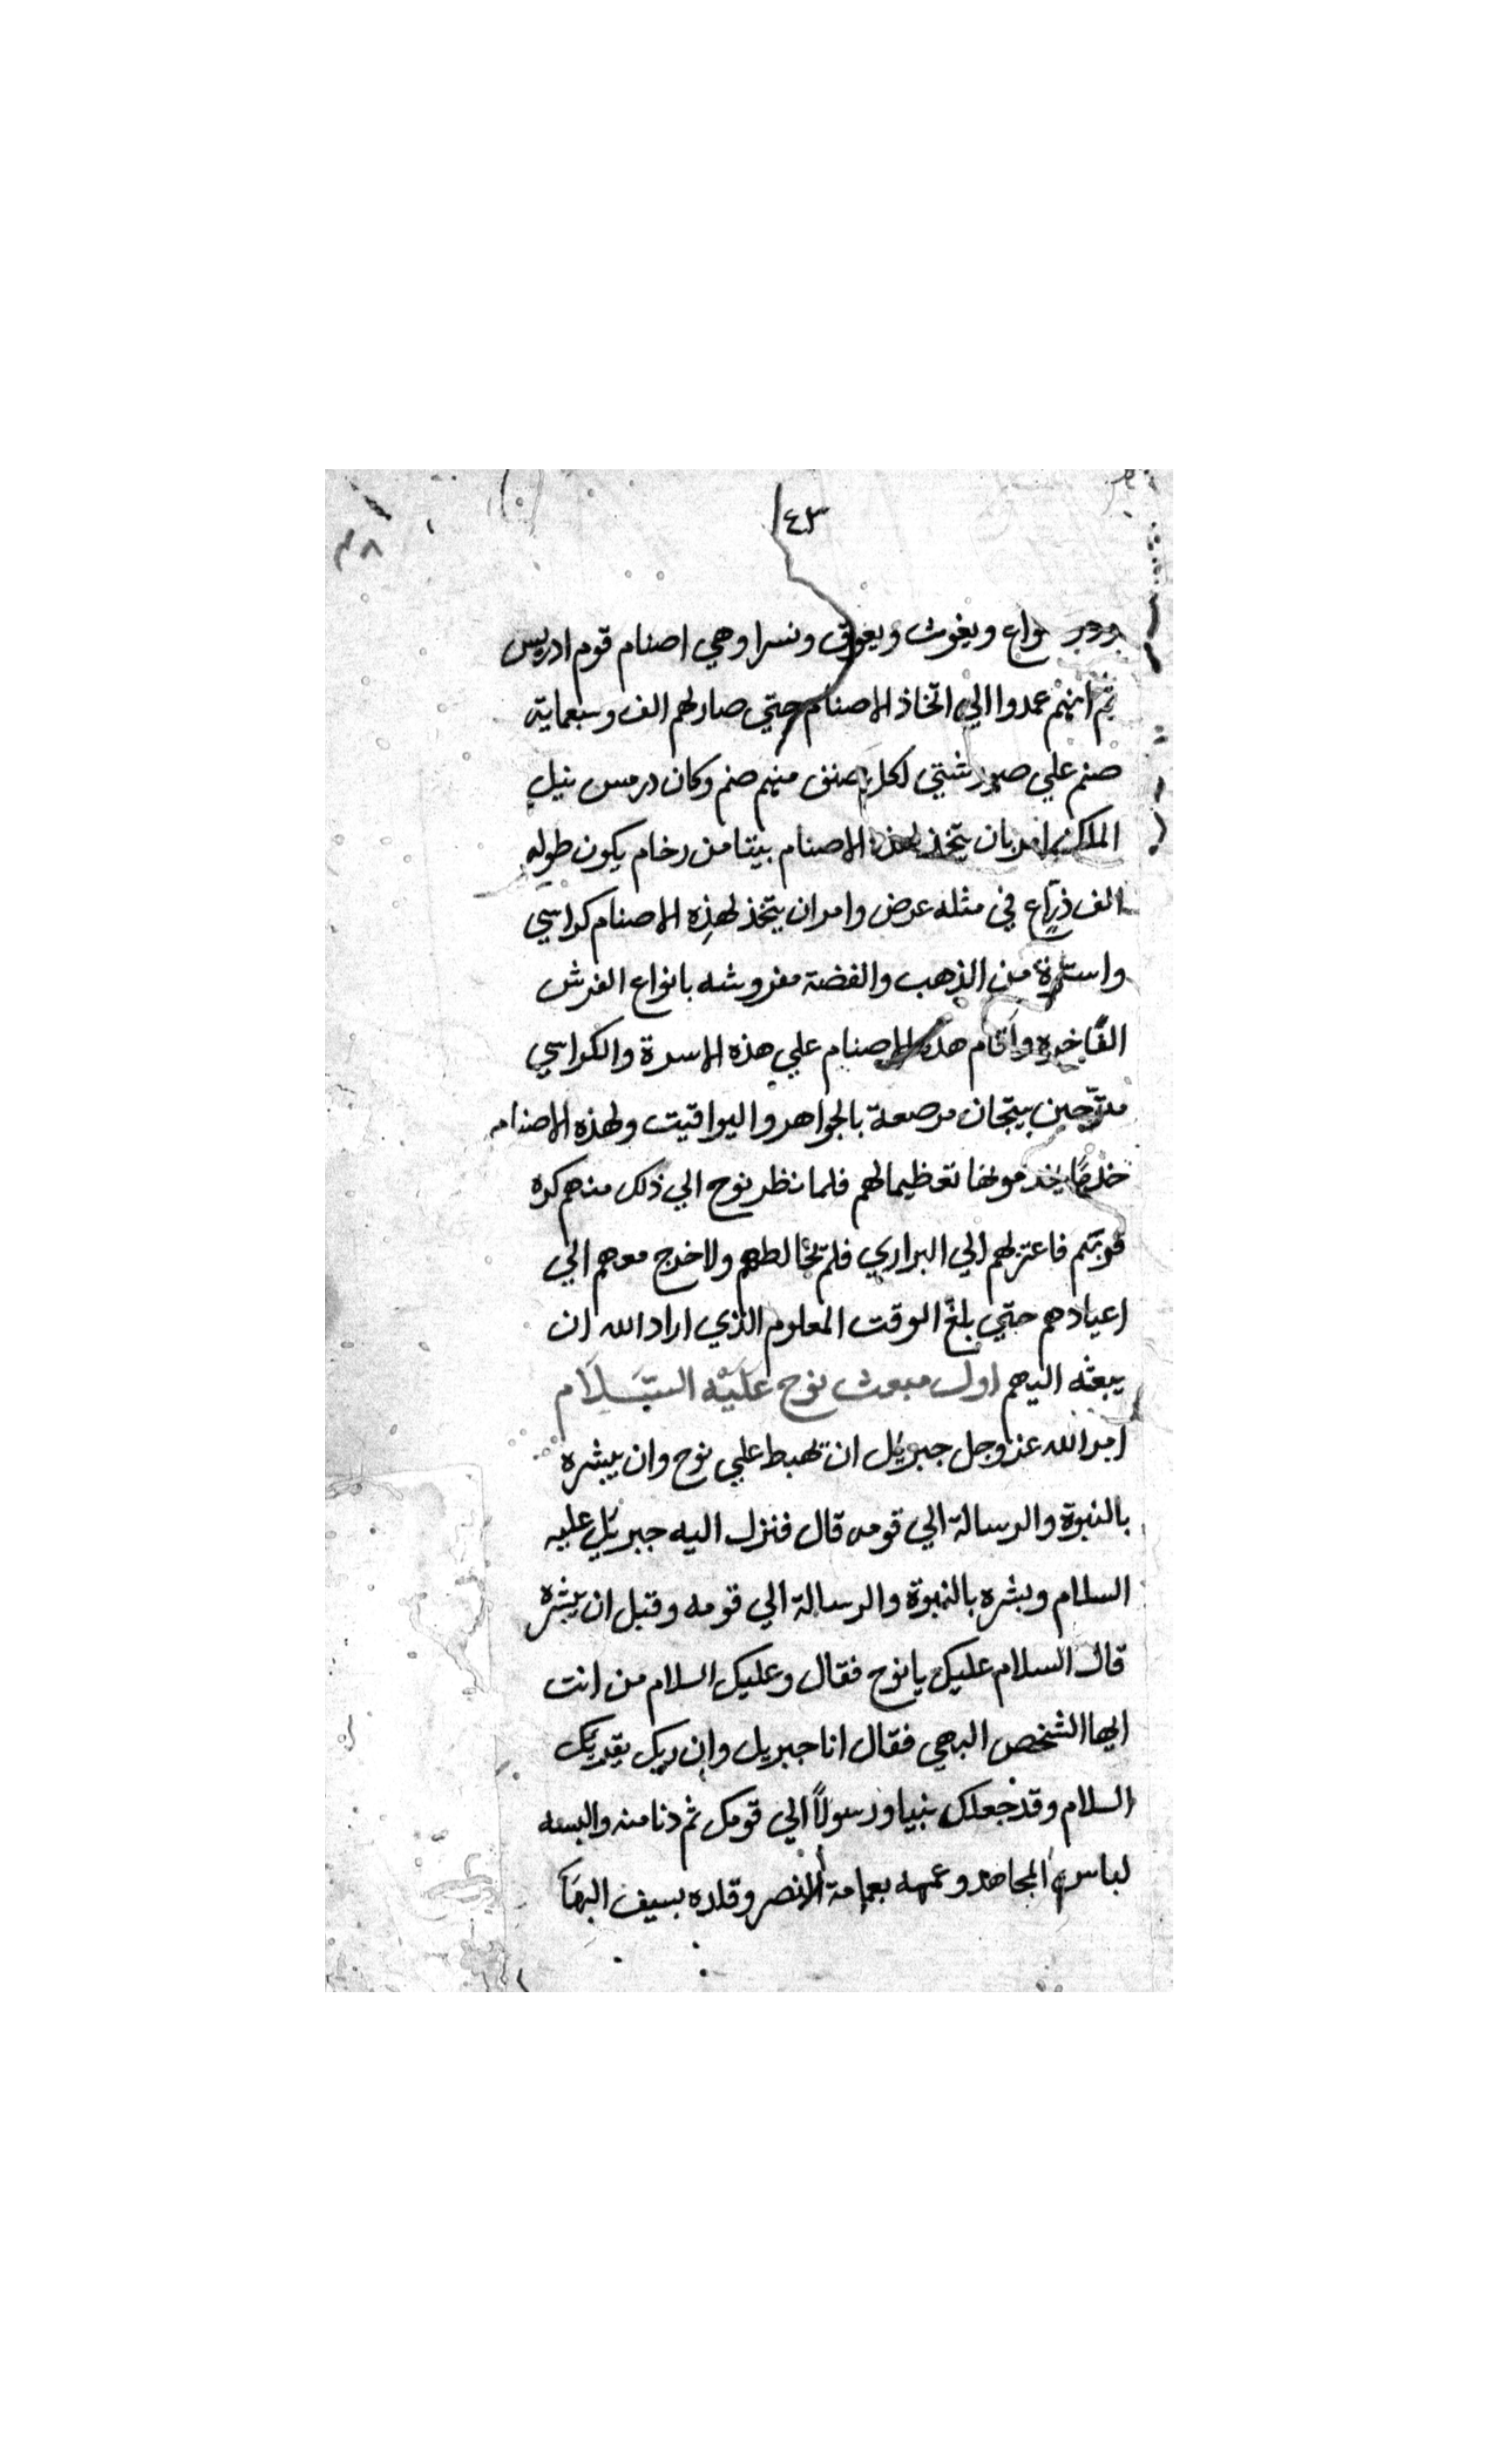 ٤٣
سواع ويغوث ويعوق ونسرا وهي اصنام قوم ادريس
ثم انهم عمدوا الي اتخاذ الاصنام حتي صار لهم الف وسبعماية
صنم علي صور شتي لكل صنف منهم صنم وكان درمس نيل
الملك امر بان يتخذ لهذه الاصنام بيتا من رخام يكون طوله
الف ذراع في مثله عرض وامر ان يتخذ لهذه الاصنام كراسي
واسرة من الذهب والفضة مفروشه بانواع الفرش
الفاخره واقام هذه الاصنام علي هذه الاسرة والكراسي
متوجين بتيجان مرصعة بالجواهر واليواقيت ولهذه الاصنام
خدما يخدمونها تعظيما لهم فلما نظر نوح الي ذلك منهم كره
قربتهم فاعتزلهم الي البراري فلم يخالطهم ولا خرج معهم الي
اعيادهم حتي بلغ الوقت المعلوم الذي اراد الله ان
يبعثه اليهم اول مبعث نوح عَلَيْه السَّلَام
امر الله عز وجل جبريل ان يهبط علي نوح وان يبشره
بالنبوة والرسالة الي قومه قال فنزل اليه جبريل عليه
السلام وبشره بالنبوة والرسالة الي قومه وقبل ان يبشره
قال السلام عليك يا نوح فقال وعليك السلام من انت
ايها الشخص البهي فقال انا جبريل وان ربك يقريك
السلام وقد جعلك نبيا ورسولاً الي قومك ثم دنا منه والبسه
لباس المجاهد وعممه بعمامة النصر وقلده بسيف البهآ